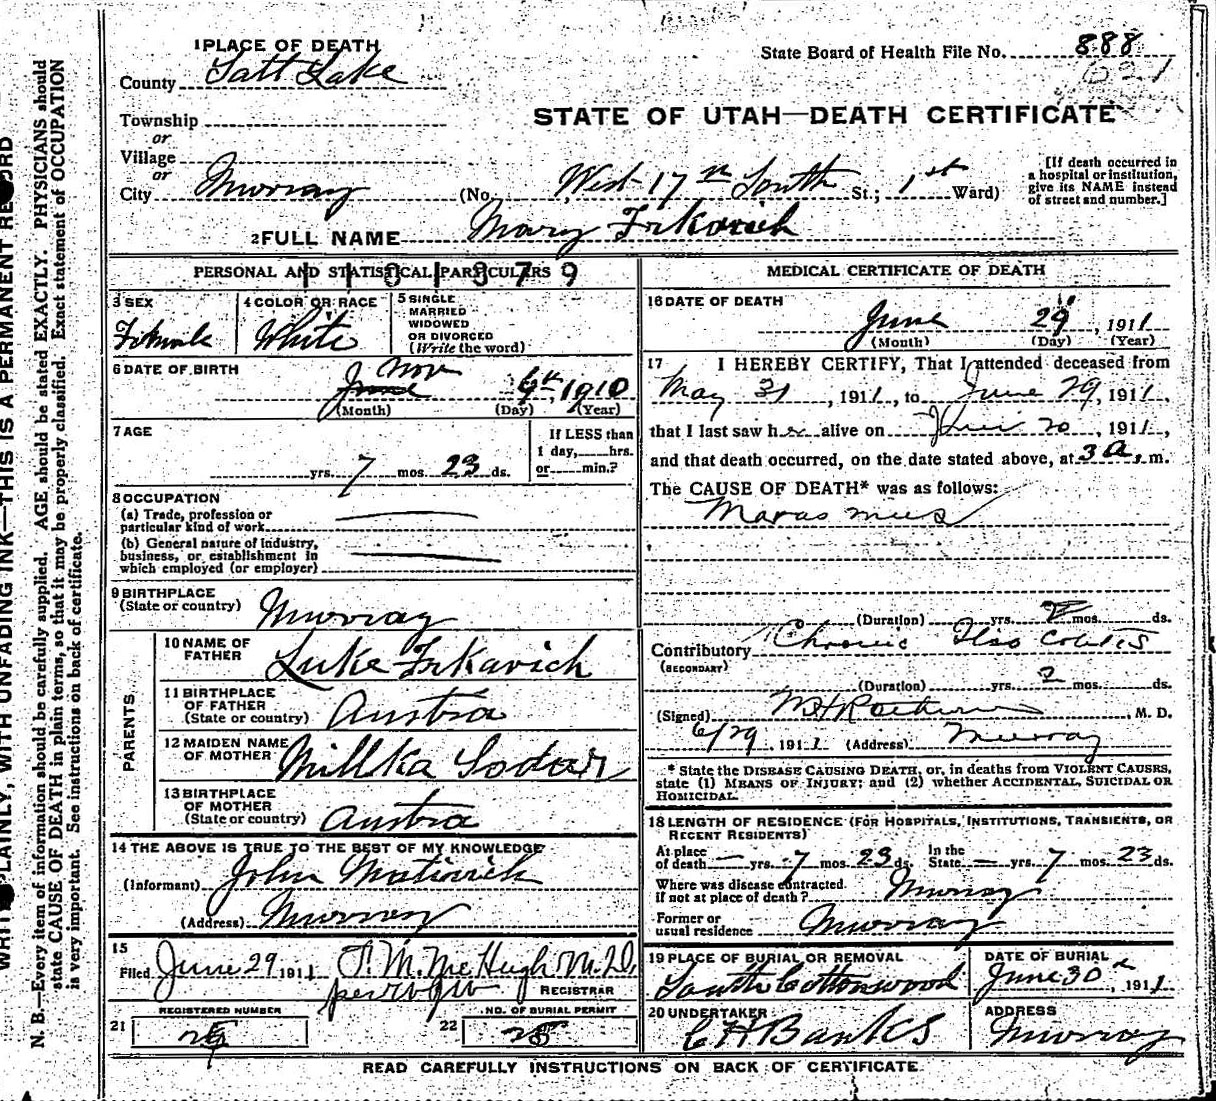 1 PLACE OF DEATH
County Salt Lake
State Board of Health File No. 888
621
Township
or
Village
or
City Murray (No. West 17th South St.; 1st Ward)
STATE OF UTAH—DEATH CERTIFICATE
[If death occurred in a hospital or institution, give its NAME instead of street and number.]
2 FULL NAME Mary Frkovich
PERSONAL AND STATISTICAL PARTICULARS
1101379
3 SEX
Female
4 COLOR OR RACE
White
5 SINGLE
MARRIED
WIDOWED
OR DIVORCED
(Write the word)
6 DATE OF BIRTH
Nov
June 6th, 1910
(Month) (Day) (Year)
7 AGE
If LESS than
1 day, hrs.
or min.?
yrs. 7 mos. 23 ds.
8 OCCUPATION
(a) Trade, profession or
particular kind of work
(b) General nature of industry,
business, or establishment in
which employed (or employer)
9 BIRTHPLACE
(State or country) Murray
PARENTS
10 NAME OF
FATHER Luke Frkavich
11 BIRTHPLACE
OF FATHER
(State or country) Austria
12 MAIDEN NAME
OF MOTHER Millka
13 BIRTHPLACE
OF MOTHER
(State or country) Austria
14 THE ABOVE IS TRUE TO THE BEST OF MY KNOWLEDGE
(Informant) John
(Address) Murray
15
Filed June 29 1911 McHugh M.D.
REGISTRAR
REGISTERED NUMBER
21
NO. OF BURIAL PERMIT
22 25
MEDICAL CERTIFICATE OF DEATH
16 DATE OF DEATH
June 29, 1911
(Month) (Day) (Year)
17 I HEREBY CERTIFY, That I attended deceased from
May 31, 1911, to June 29, 1911,
that I last saw her alive on 1911,
and that death occurred, on the date stated above, at 3 a. m.
The CAUSE OF DEATH* was as follows:
Marasmus
(Duration) yrs. mos. ds.
Contributory Chronic Ileo Colitis
(SECONDARY)
(Duration) yrs. 2 mos. ds.
(Signed) M. D.
6/29, 1911 (Address) Murray
* State the DISEASE CAUSING DEATH, or, in deaths from VIOLENT CAUSES,
state (1) MEANS OF INJURY; and (2) whether ACCIDENTAL, SUICIDAL OR
HOMICIDAL.
18 LENGTH OF RESIDENCE (FOR HOSPITALS, INSTITUTIONS, TRANSIENTS, OR
RECENT RESIDENTS)
At place
of death — yrs. 7 mos. 23 ds. In the State — yrs. 7 mos. 23 ds.
Where was disease contracted
if not at place of death? Murray
Former or
usual residence Murray
19 PLACE OF BURIAL OR REMOVAL
South Cottonwood
DATE OF BURIAL
June 30, 1911
20 UNDERTAKER
C H Banks
ADDRESS
Murray
READ CAREFULLY INSTRUCTIONS ON BACK OF CERTIFICATE
WRITE PLAINLY, WITH UNFADING INK—THIS IS A PERMANENT RECORD
N. B.—Every item of information should be carefully supplied. AGE should be stated EXACTLY. PHYSICIANS should
state CAUSE OF DEATH in plain terms, so that it may be properly classified. Exact statement of OCCUPATION
is very important. See instructions on back of certificate.